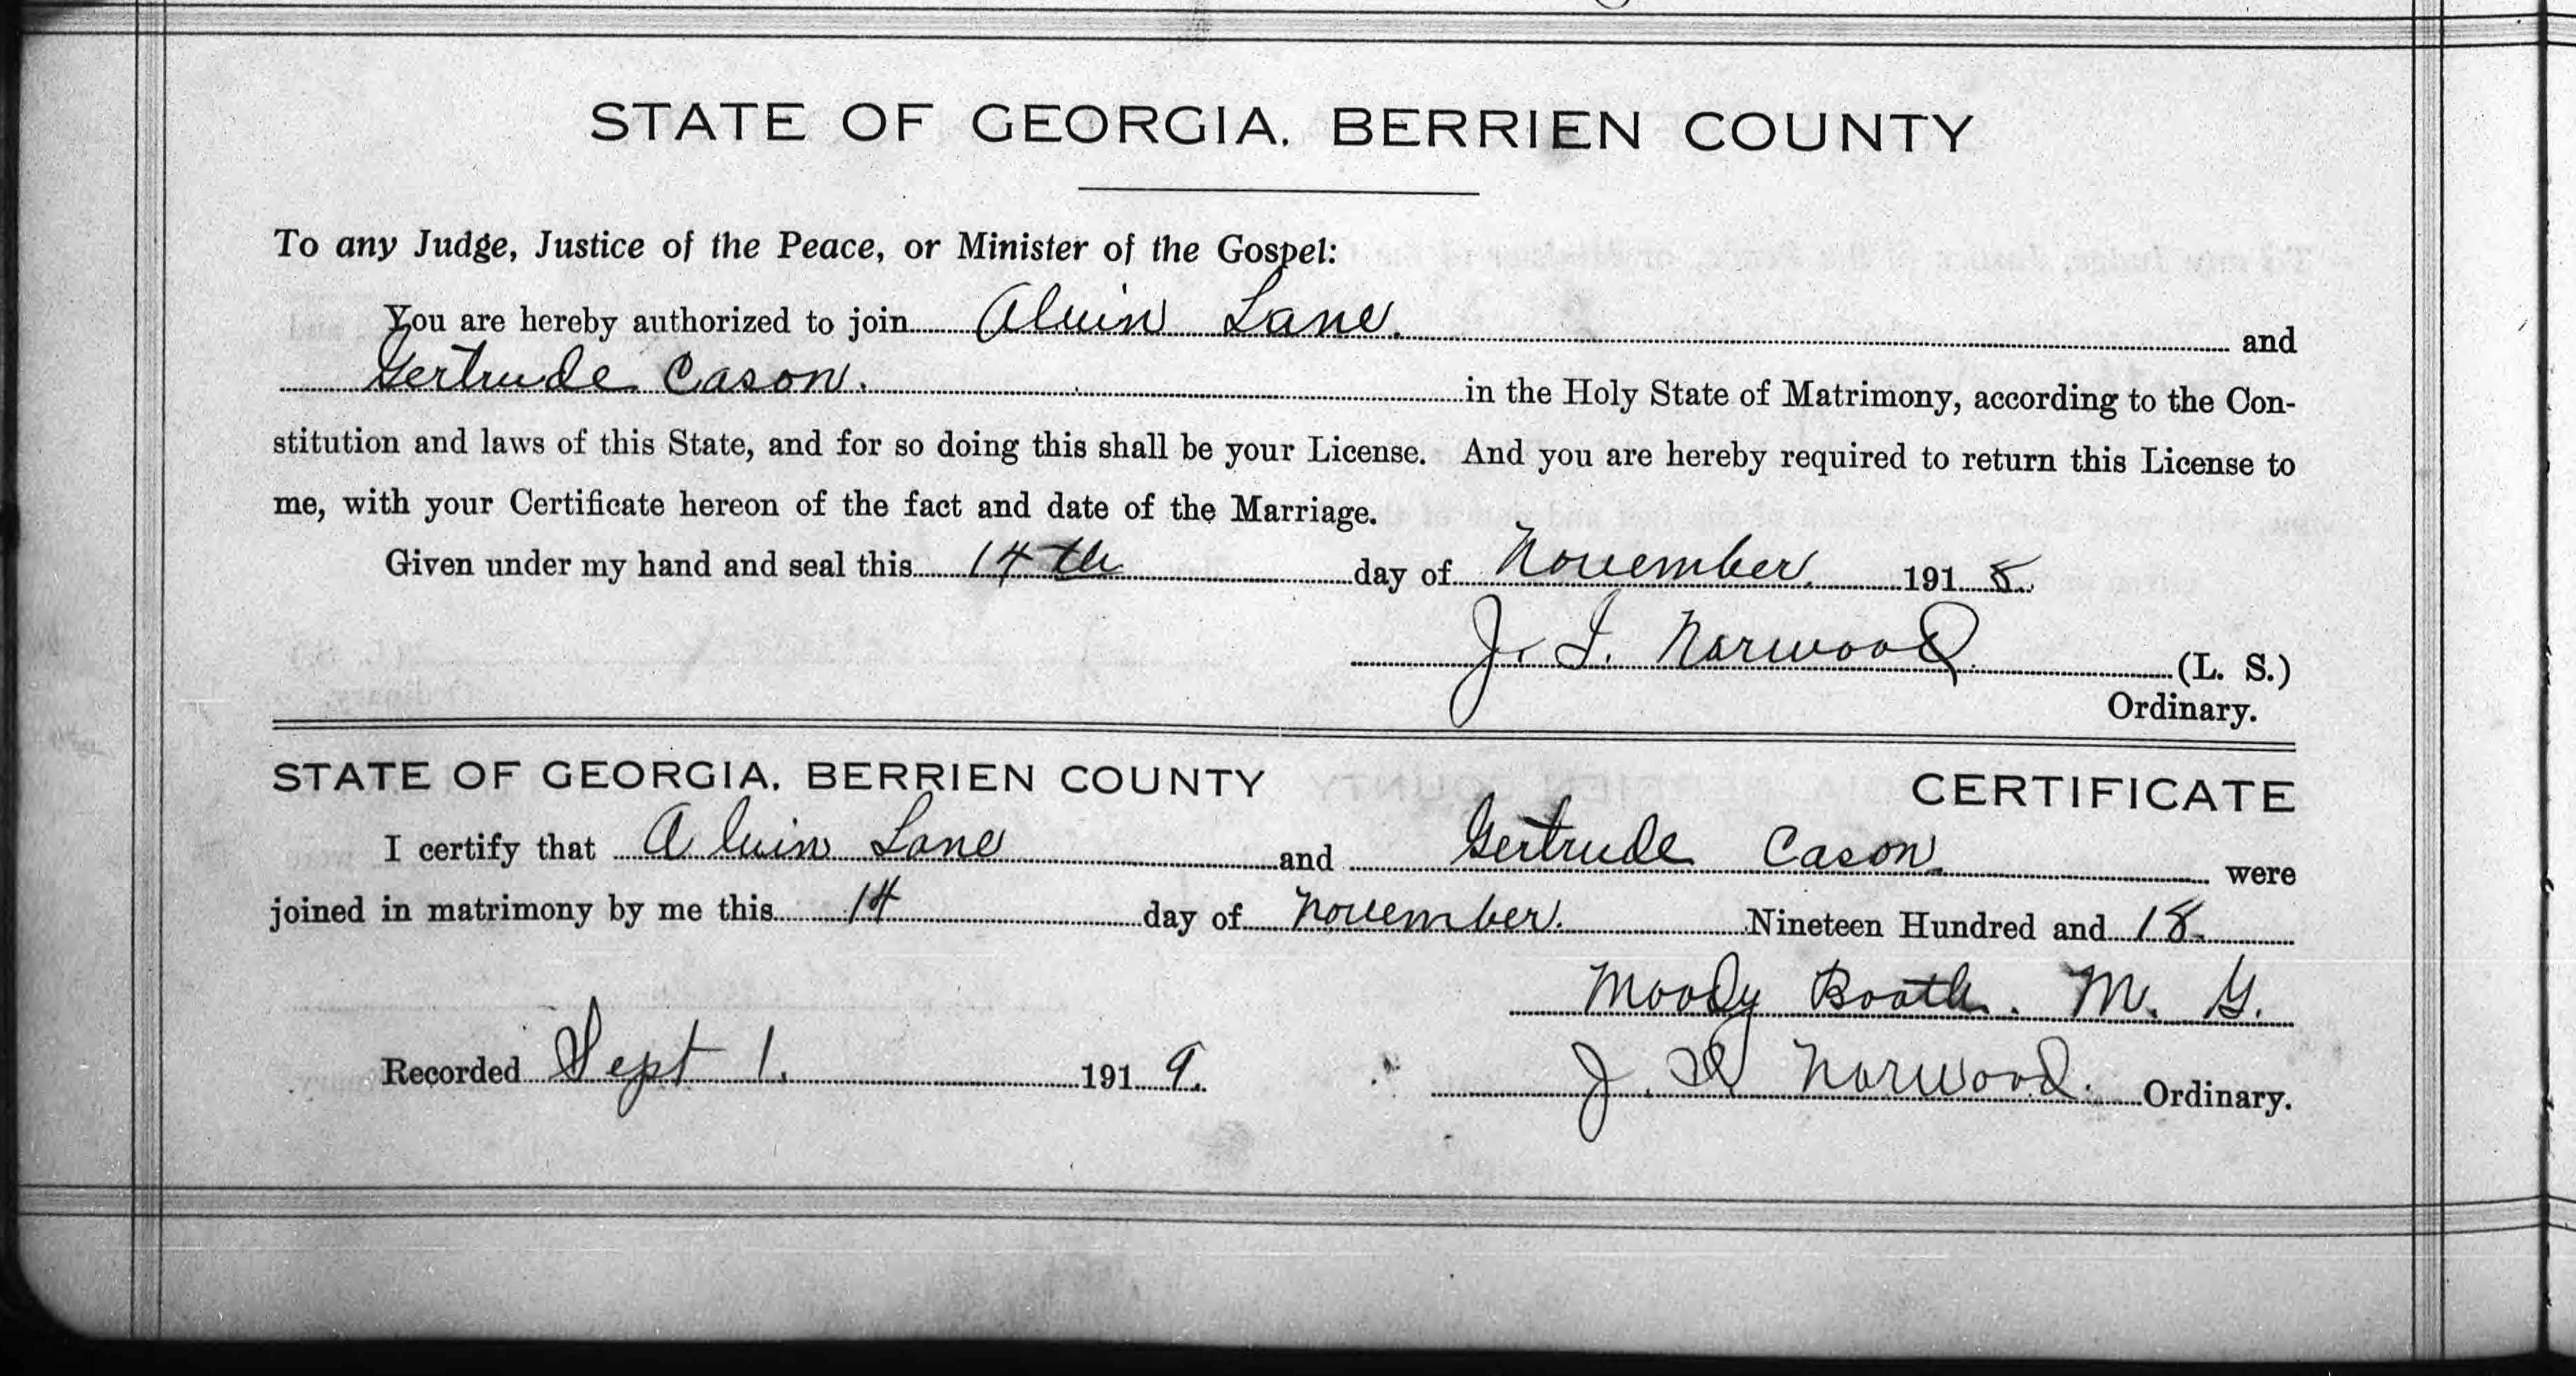 STATE OF GEORGIA, BERRIEN COUNTY
To any Judge, Justice of the Peace, or Minister of the Gospel:
You are hereby authorized to join Alvin Lane. and
Gertrude Cason. in the Holy State of Matrimony, according to the Con-
stitution and laws of this State, and for so doing this shall be your License. And you are hereby required to return this License to
me, with your Certificate hereon of the fact and date of the Marriage.
Given under my hand and seal this 14th day of November. 1918.
J. Norwood. (L. S.)
Ordinary.
STATE OF GEORGIA, BERRIEN COUNTY CERTIFICATE
I certify that Alvin Lane and Gertrude Cason. were
joined in matrimony by me this 14 day of November. Nineteen Hundred and 18.
Moody Booth. M. G.
Recorded Sept 1. 1919. J. Norwood. Ordinary.